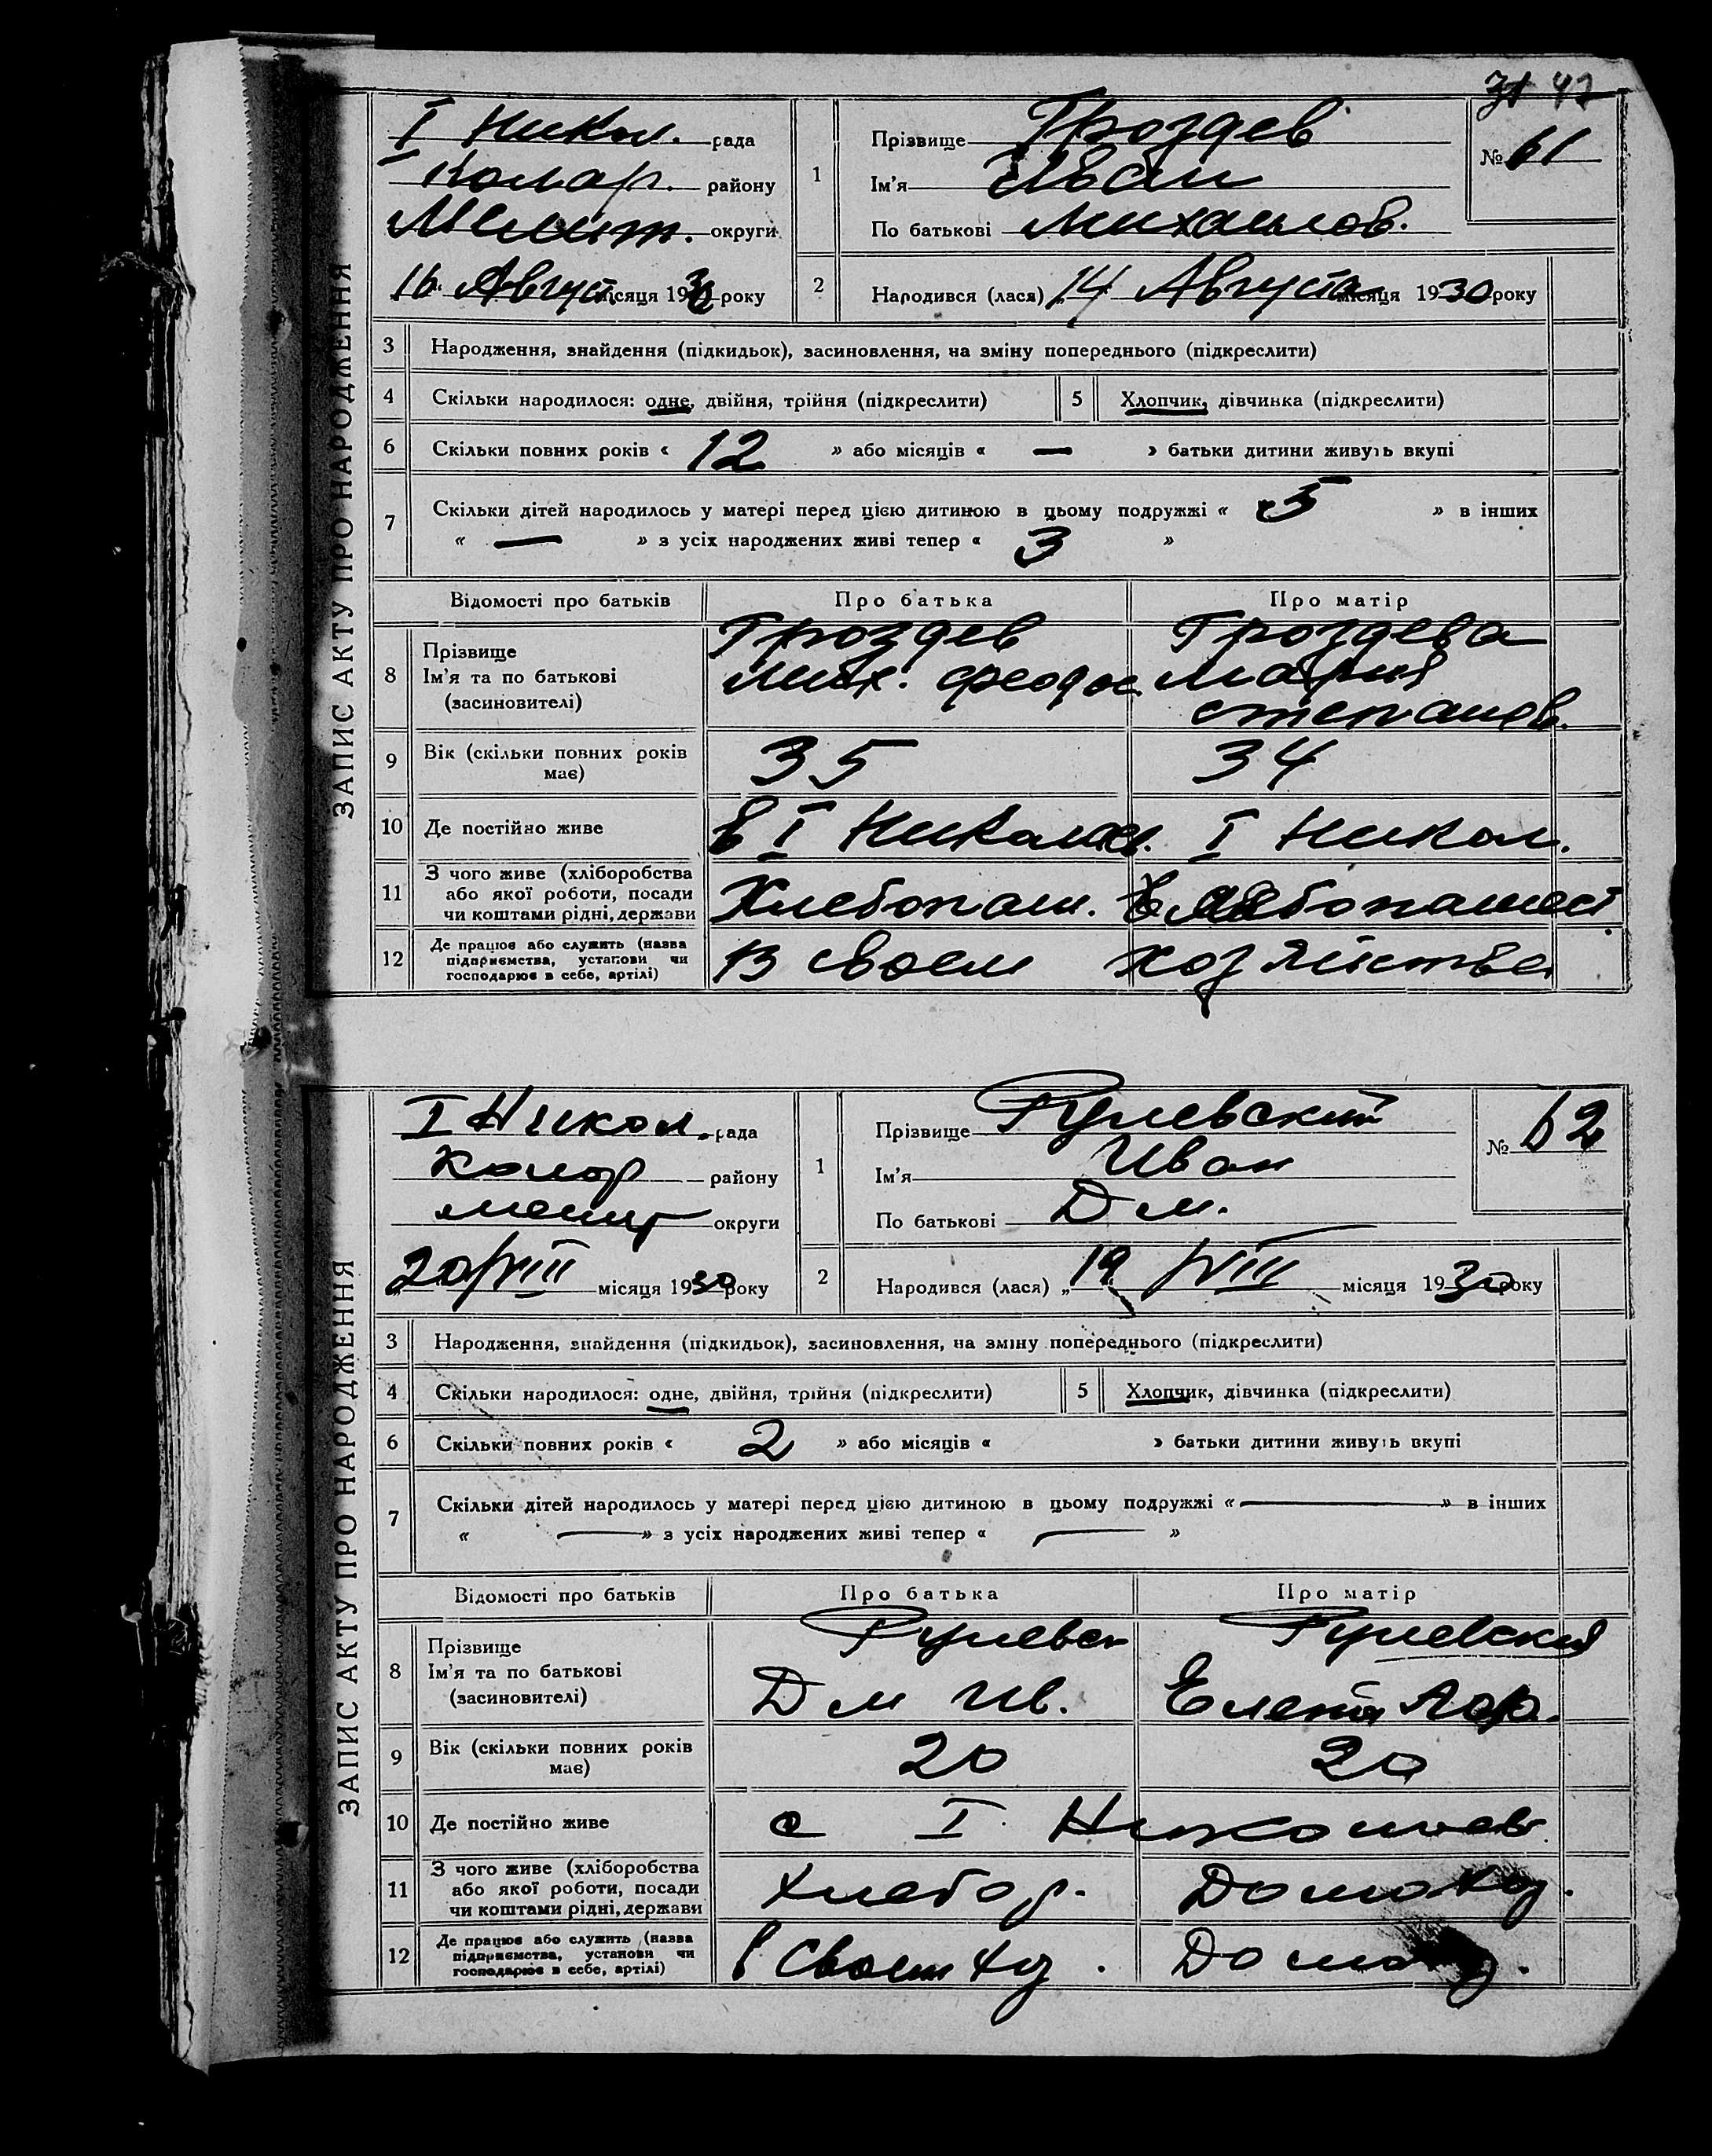 47
ЗАПИС АКТУ ПРО НАРОДЖЕННЯ
I Никол. рада
Колар. району
Мелит. округи
16 Август місяця 1930 року
1 Прізвище Гроздев
Ім'я Иван
По батькові Михаилов.
№ 61
2 Народився (лася) „14 Августа місяця 1930 року
3 Народження, знайдення (підкидьок), засиновлення, на зміну попереднього (підкреслити)
4 Скільки народилося: одне, двійня, трійня (підкреслити) 5 Хлопчик, дівчинка (підкреслити)
6 Скільки повних років « 12 » або місяців « — » батьки дитини живуть вкупі
7 Скільки дітей народилось у матері перед цією дитиною в цьому подружжі « 5 » в інших
« — » з усіх народжених живі тепер « 3 »
Відомості про батьків Про батька Про матір
8 Прізвище Ім'я та по батькові (засиновителі)
Гроздев Гроздева
Мих. Феодос Мария
Степанов.
9 Вік (скільки повних років має) 35 34
10 Де постійно живе в I Николаев. I Никол.
11 З чого живе (хліборобства або якої роботи, посади чи коштами рідні, держави Хлебопаш. Хлебопашест
12 Де працює або служить (назва підприємства, установи чи господарює в себе, артілі) В своем хозяйстве
ЗАПИС АКТУ ПРО НАРОДЖЕННЯ
I Никол. рада
Колар району
Мелит округи
„20/VIII місяця 1930 року
1 Прізвище Рулевский
Ім'я Иван
По батькові Дм.
№ 62
2 Народився (лася) „19 /VIII місяця 1930 року
3 Народження, знайдення (підкидьок), засиновлення, на зміну попереднього (підкреслити)
4 Скільки народилося: одне, двійня, трійня (підкреслити) 5 Хлопчик, дівчинка (підкреслити)
6 Скільки повних років « 2 » або місяців « » батьки дитини живуть вкупі
7 Скільки дітей народилось у матері перед цією дитиною в цьому подружжі « — » в інших
« — » з усіх народжених живі тепер « — »
Відомості про батьків Про батька Про матір
8 Прізвище Ім'я та по батькові (засиновителі)
Рулевск Рулевская
Дм Ив. Елена
9 Вік (скільки повних років має) 20 20
10 Де постійно живе с I Николаев
11 З чого живе (хліборобства або якої роботи, посади чи коштами рідні, держави хлебор. Домохоз.
12 Де працює або служить (назва підприємства, установи чи господарює в себе, артілі) в своем хоз. Домохоз.